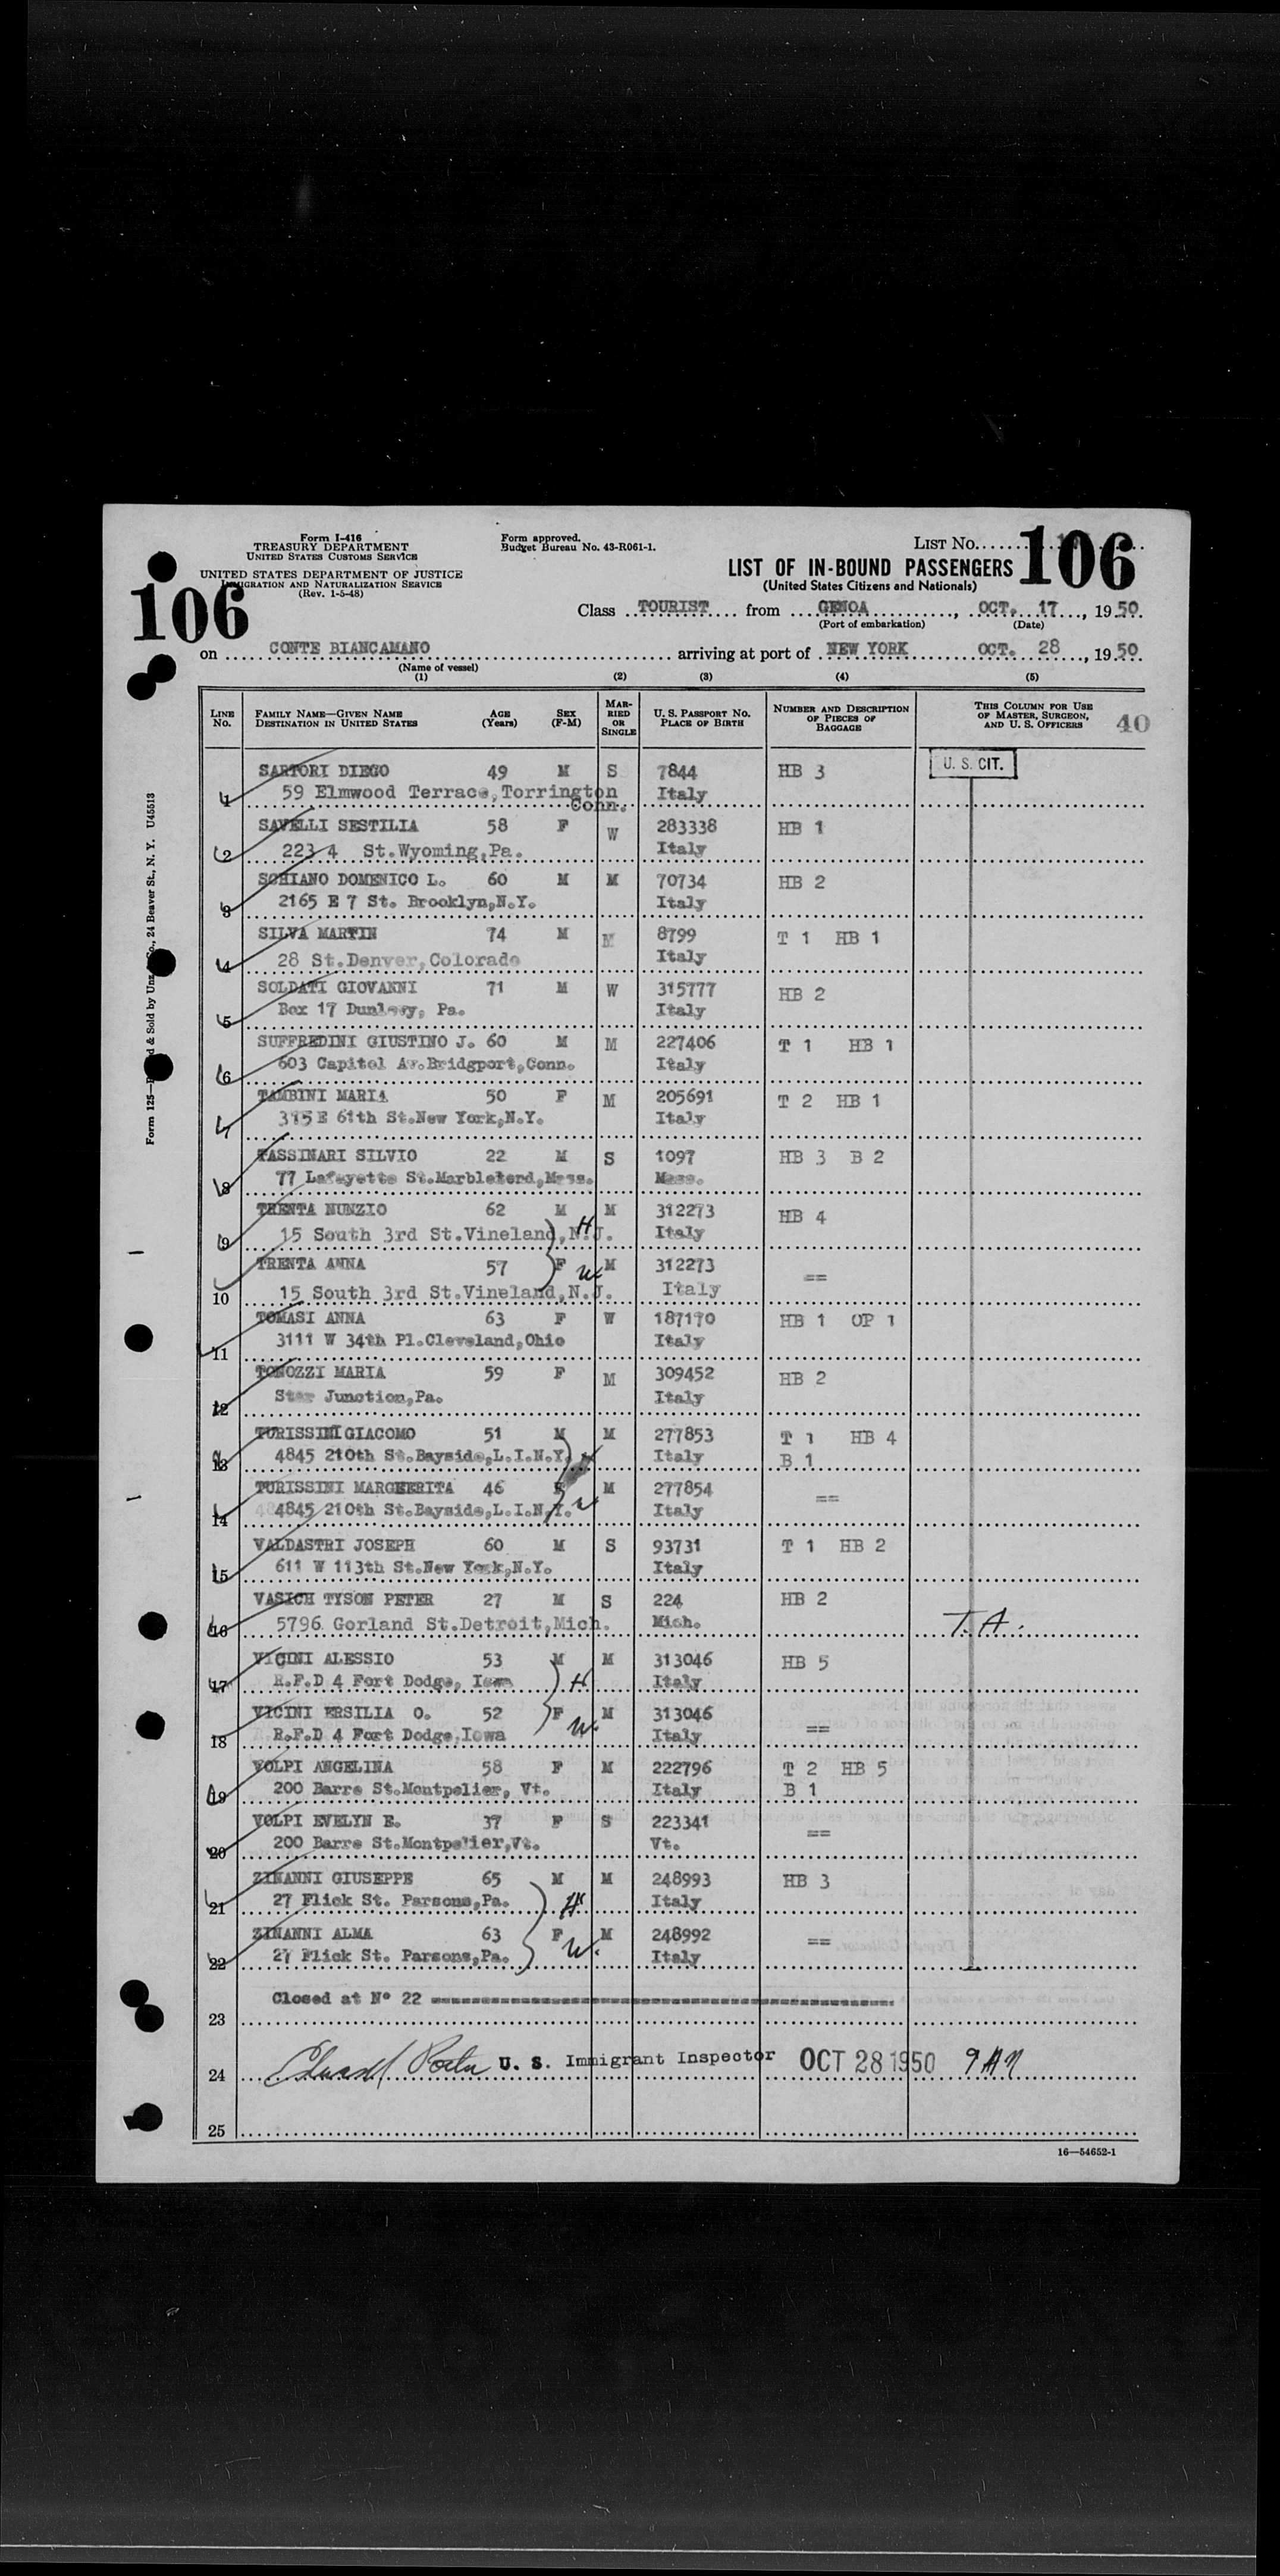 Form I-416
TREASURY DEPARTMENT
UNITED STATES CUSTOMS SERVICE
UNITED STATES DEPARTMENT OF JUSTICE
IMMIGRATION AND NATURALIZATION SERVICE
(Rev. 1-5-48)
Form approved.
Budget Bureau No. 43-R061-1.
LIST NO. 106
106
LIST OF IN-BOUND PASSENGERS
(United States Citizens and Nationals)
Class TOURIST from GENOA, OCT. 17, 1950
(Port of embarkation) (Date)
on CONTE BIANCAMANO arriving at port of NEW YORK OCT. 28, 1950
(Name of vessel)
(1) (2) (3) (4) (5)
LINE NO. FAMILY NAME—GIVEN NAME DESTINATION IN UNITED STATES AGE (Years) SEX (F-M) MARRIED OR SINGLE U. S. PASSPORT NO. PLACE OF BIRTH NUMBER AND DESCRIPTION OF PIECES OF BAGGAGE THIS COLUMN FOR USE OF MASTER, SURGEON, AND U. S. OFFICERS 40
SARTORI DIEGO 49 M S 7844 HB 3 U. S. CIT.
1 59 Elmwood Terrace,Torrington Conn. Italy
SAVELLI SESTILIA 58 F W 283338 HB 1
2 223 4 St.Wyoming,Pa. Italy
SCHIANO DOMENICO L. 60 M M 70734 HB 2
3 2165 E 7 St. Brooklyn,N.Y. Italy
SILVA MARTIN 74 M M 8799 T 1 HB 1
4 28 St.Denver,Colorado Italy
SOLDATI GIOVANNI 71 M W 315777 HB 2
5 Box 17 Pa. Italy
SUFFREDINI GIUSTINO J. 60 M M 227406 T 1 HB 1
6 603 Capitol Av.Bridgport,Conn. Italy
TAMBINI MARIA 50 F M 205691 T 2 HB 1
7 315 E 61th St.New York,N.Y. Italy
TASSINARI SILVIO 22 M S 1097 HB 3 B 2
8 77 Lafayette St. Mass. Mass.
TRENTA NUNZIO 62 M M 312273 HB 4
9 15 South 3rd St.Vineland,N.J. H Italy
TRENTA ANNA 57 F W M 312273 ==
10 15 South 3rd St.Vineland,N.J. Italy
TOMASI ANNA 63 F W 187170 HB 1 OP 1
11 3111 W 34th Pl.Cleveland,Ohio Italy
TONOZZI MARIA 59 F M 309452 HB 2
12 Star Junction,Pa. Italy
TURISSINI GIACOMO 51 M M 277853 T 1 HB 4
13 4845 210th St.Bayside,L.I.N.Y. Italy B 1
TURISSINI MARGHERITA 46 F M 277854 ==
14 4845 210th St.Bayside,L.I.N.Y. W Italy
VALDASTRI JOSEPH 60 M S 93731 T 1 HB 2
15 611 W 113th St.New York,N.Y. Italy
VASICH TYSON PETER 27 M S 224 HB 2
16 5796 Gorland St.Detroit,Mich. Mich. T.A.
VICINI ALESSIO 53 M M 313046 HB 5
17 R.F.D 4 Fort Dodge, Iowa H Italy
VICINI ERSILIA O. 52 F M 313046 ==
18 R.F.D 4 Fort Dodge,Iowa W. Italy
VOLPI ANGELINA 58 F M 222796 T 2 HB 5
19 200 Barre St.Montpelier, Vt. Italy B 1
VOLPI EVELYN E. 37 F S 223341 ==
20 200 Barre St.Montpelier,Vt. Vt.
ZINANNI GIUSEPPE 65 M M 248993 HB 3
21 27 Flick St. Parsons,Pa. H Italy
ZINANNI ALMA 63 F M 248992 ==
22 27 Flick St. Parsons,Pa. W. Italy
Closed at N° 22
23
24 U. S. Immigrant Inspector OCT 28 1950 9 AM
25
16—54652-1